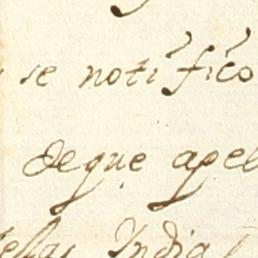 se notifico
de que apel
Indias